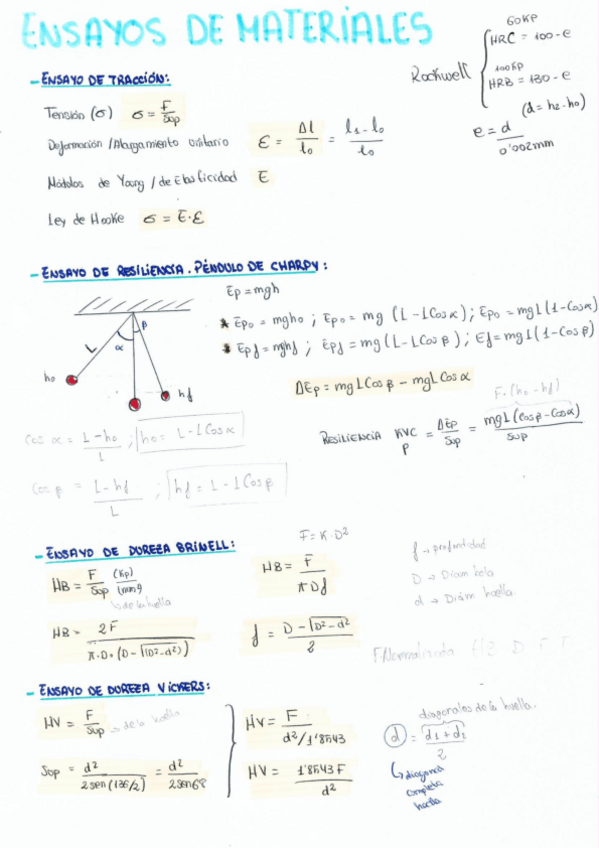 ENSAYOS DE MATERIALES
60KP
Rockwell
HRC = 100-e
100KP
HRB = 130-e
(d = h2-h0)
e = d / 0'002mm
- ENSAYO DE TRACCIÓN:
Tensión (σ) σ = F / Sop
Deformación / Alargamiento Unitario ε = Δl / l0 = l1 - l0 / l0
Módulos de Young / de Elasticidad E
Ley de Hooke σ = E·ε
- ENSAYO DE RESILIENCIA. PÉNDULO DE CHARPY:
Ep = mgh
* Epo = mgho ; Epo = mg (L - L Cos α) ; Epo = mgL (1 - Cos α)
* Epf = mghf ; Epf = mg (L - L Cos β) ; Ef = mgL (1 - Cos β)
L α β
ho hf
ΔEp = mgL Cos β - mgL Cos α
F·(ho - hf)
Cos α = L - ho / L ; ho = L - L Cos α
RESILIENCIA KVC = ΔEp / Sop = mgL (Cos β - Cos α) / Sop
P
Cos β = L - hf / L ; hf = L - L Cos β
- ENSAYO DE DUREZA BRINELL:
F = K·D²
HB = F / Sop (Kp)
↳ de la huella
HB = F / π D f
f → profundidad
D → Diám bola
d → Diám huella
HB = 2F / π·D·(D - √(D² - d²))
f = D - √(D² - d²) / 2
F Normalizada
- ENSAYO DE DUREZA VICKERS:
HV = F / Sop → de la huella
HV = F / d²/1'8543
diagonales de la huella.
d = d1 + d2 / 2
Sop = d² / 2 sen (136/2) = d² / 2 sen 68
HV = 1'8543 F / d²
↳ diagonal
completa
huella